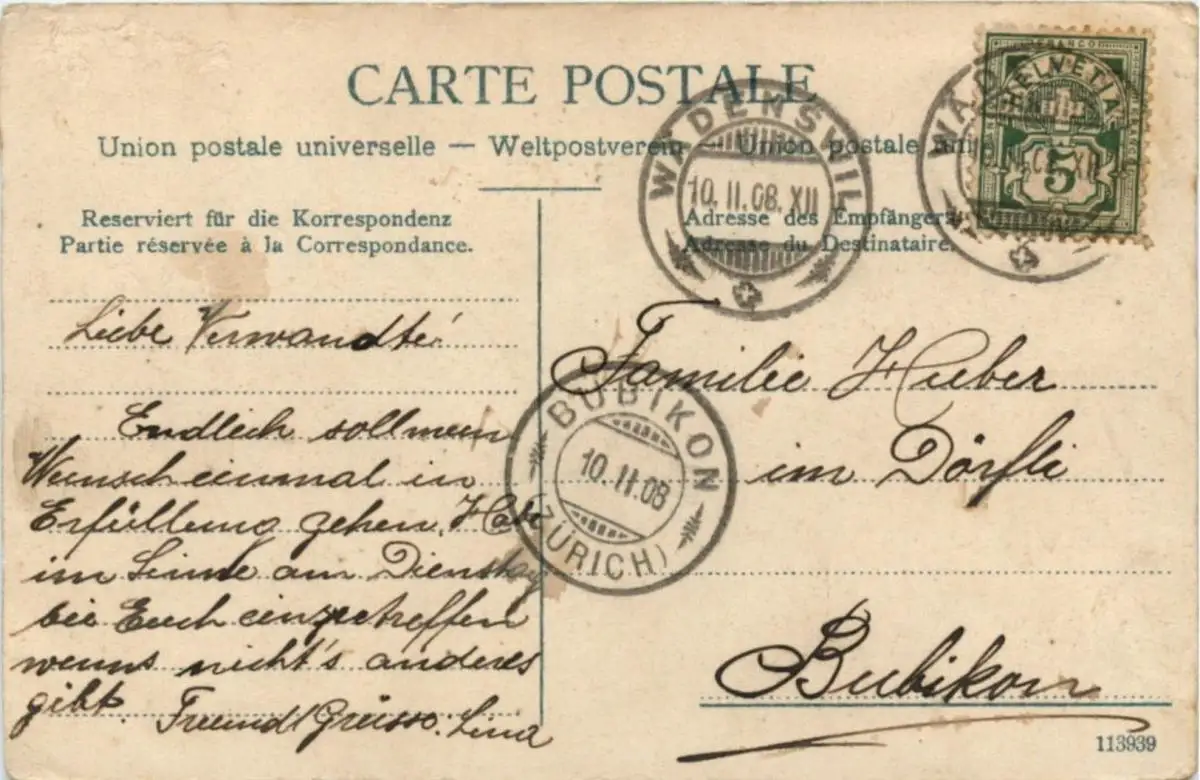 CARTE POSTALE
Union postale universelle — Weltpostverein — Union postale
Reserviert für die Korrespondenz
Partie réservée à la Correspondance.
Adresse des Empfängers
Adresse du Destinataire.
FRANCO
HELVETIA
5
WÄDENSWIL
10.II.08.XII
WÄD
XII
BUBIKON
10.II.08
(ZÜRICH)
Liebe Verwandte!
Endlich soll mein
Wunsch einmal in
Erfüllung gehen. Habe
im Sinne am Dienstag
bei Euch einzutreffen
wenns nicht's anderes
gibt.
Freundl Grüsse. Lina
Familie Huber
im Dörfli
Bubikon
113939